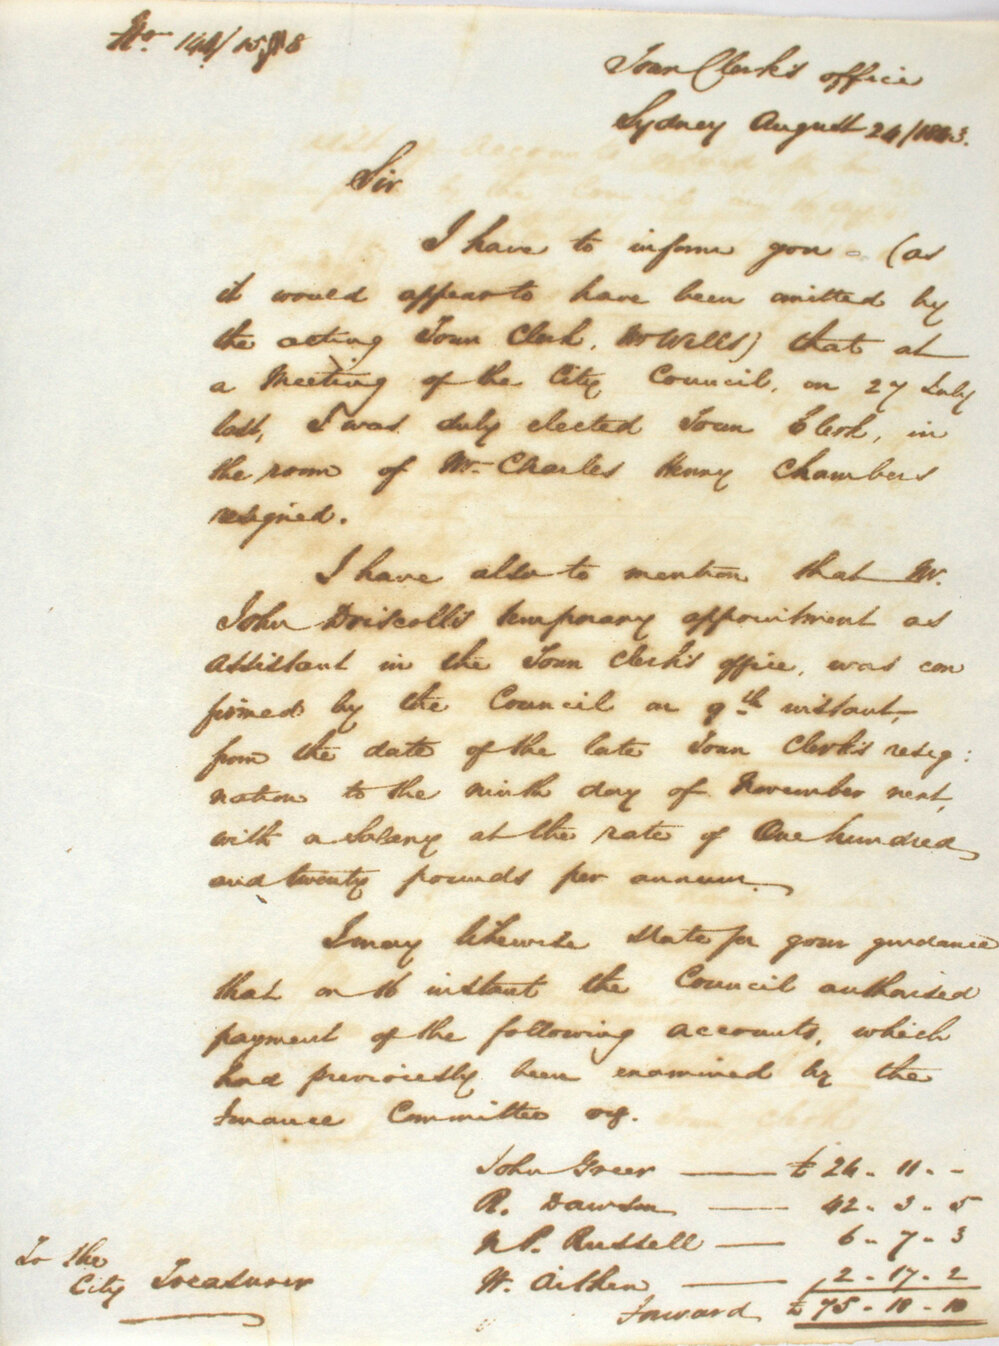 Town Clerk's office
Sydney August 24/1843.
Sir
I have to inform you - (as
it would appear to have been omitted by
the acting Town Clerk, Mr Wells) that at
a Meeting of the City Council, on 27 July
last, I was duly elected Town Clerk, in
the room of Mr. Charles Henry Chambers
resigned.
I have also to mention that Mr.
John Driscoll's temporary appointment as
Assistant in the Town Clerk's office, was con
firmed by the Council on 9th instant,
from the date of the late Town Clerk's resig:
nation to the ninth day of November next,
with a Salary at the rate of One hundred
and twenty pounds per annum.
I may likewise state for your guidance
that on 16 instant the Council authorised
payment of the following accounts, which
had previously been examined by the
Finance Committee vizt.
John Greer — £24 - 11 - -
R. Dawson — 42 - 3 - 5
W. P. Russell — 6 - 7 - 3
W. Aitken — 2 - 17 - 2
Forward £75 - 18 - 10
To the
City Treasurer